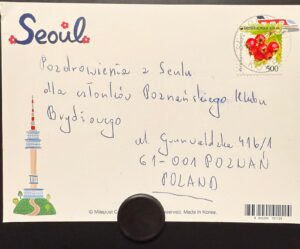 Seoul
500
Pozdrowienia z Seulu
dla członków Poznańskiego Klubu
Brydżowego
ul Grunwaldzka 416/1
61-001 POZNAŃ
POLAND
© Milepost C reserved. Made in Korea.